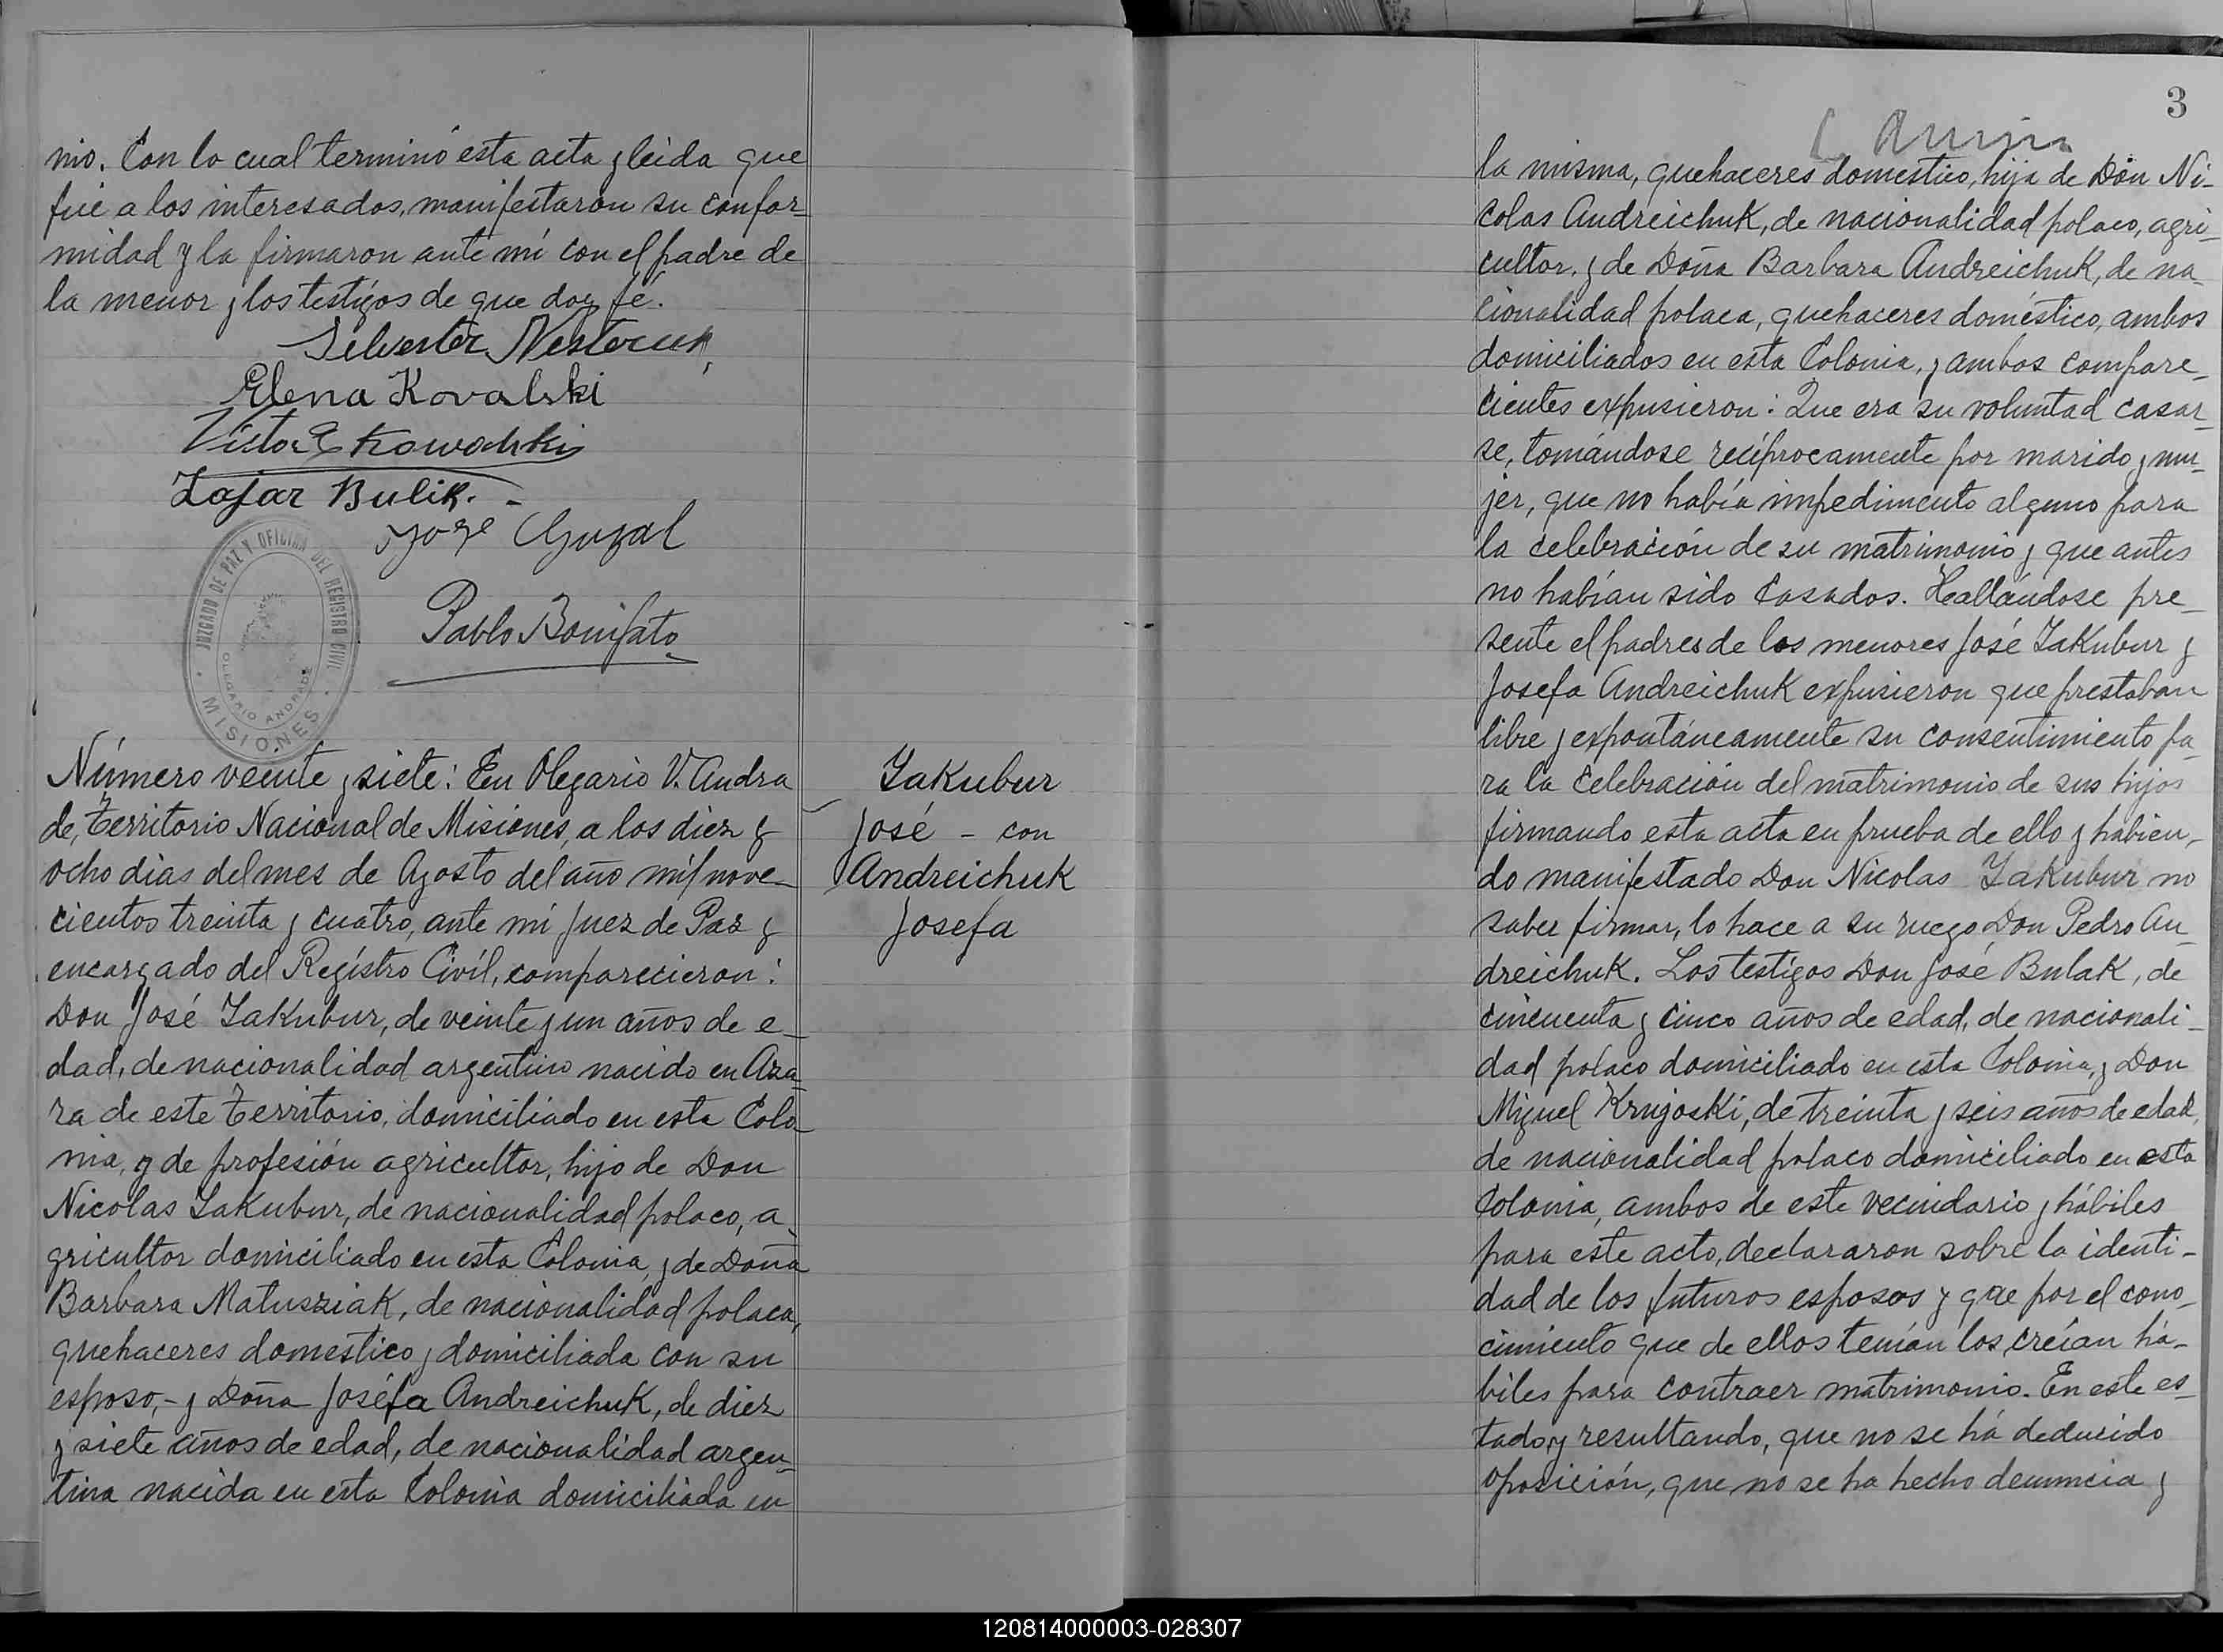 nio. Con lo cual terminó esta acta y leida que
fué a los interesados, manifestaron su confor-
midad y la firmaron ante mí con el padre de
la menor y los testigos de que doy fé.
Silvester Nesteruk
Elena Kovalski
Victor Kowalski
Zajar Bulik.-
José
Pablo Bonifato
JUZGADO DE PAZ Y OFICINA DEL REGISTRO CIVIL
OLEGARIO ANDRADE
MISIONES
Número veinte y siete: En Olegario V. Andra
de, Territorio Nacional de Misiones, a los diez y
ocho dias del mes de Agosto del año mil nove-
cientos treinta y cuatro, ante mi Juez de Paz y
encargado del Regístro Civíl, comparecieron:
Don José Yakubur, de veinte y un años de e-
dad, de nacionalidad argentino nacido en Aza-
ra de este Territorio, domiciliado en esta Colo-
nia, y de profesión agricultor, hijo de Don
Nicolas Yakubur, de nacionalidad polaco, a-
gricultor domiciliado en esta Colonia, y de Doña
Barbara Matusziak, de nacionalidad polaca,
quehaceres domestico y domiciliada con su
esposo,- y Doña Joséfa Andreichuk, de diez
y siete años de edad, de nacionalidad argen-
tina nacida en esta Colonia domiciliada en
Yakubur
José - con
Andreichuk
Josefa
3
la misma, quehaceres domestico, hija de Don Ni-
colas Andreichuk, de nacionalidad polaco, agri-
cultor, y de Doña Barbara Andreichuk, de na-
cionalidad polaca, quehaceres doméstico, ambos
domiciliados en esta Colonia, y ambos compare-
cientes expusieron: Que era su voluntad casar-
se, tomándose recíprocamente por marido y mu-
jer, que no había impedimento alguno para
la celebración de su matrimonio y que antes
no habían sido casados. Hallándose pre-
sente el padres de los menores José Yakubur y
Josefa Andreichuk expusieron que prestaban
libre y expontáneamente su consentimiento pa-
ra la celebración del matrimonio de sus hijos
firmando esta acta en prueba de ello y habien-
do manifestado Don Nicolas Yakubur no
saber firmar, lo hace a su ruego Don Pedro An-
dreichuk. Los testigos Don José Bulak, de
cincuenta y cinco años de edad, de nacionali-
dad polaco domiciliado en esta Colonia, y Don
Miguel Krujoski, de treinta y seis años de edad,
de nacionalidad polaco domiciliado en esta
Colonia, ambos de este vecindario y hábiles
para este acto, declararon sobre la identi-
dad de los futuros esposos y que por el cono-
cimiento que de ellos tenían los creían há-
biles para contraer matrimonio. En este es-
tado, y resultando, que no se há deducido
oposición, que no se ha hecho denuncia y
120814000003-028307